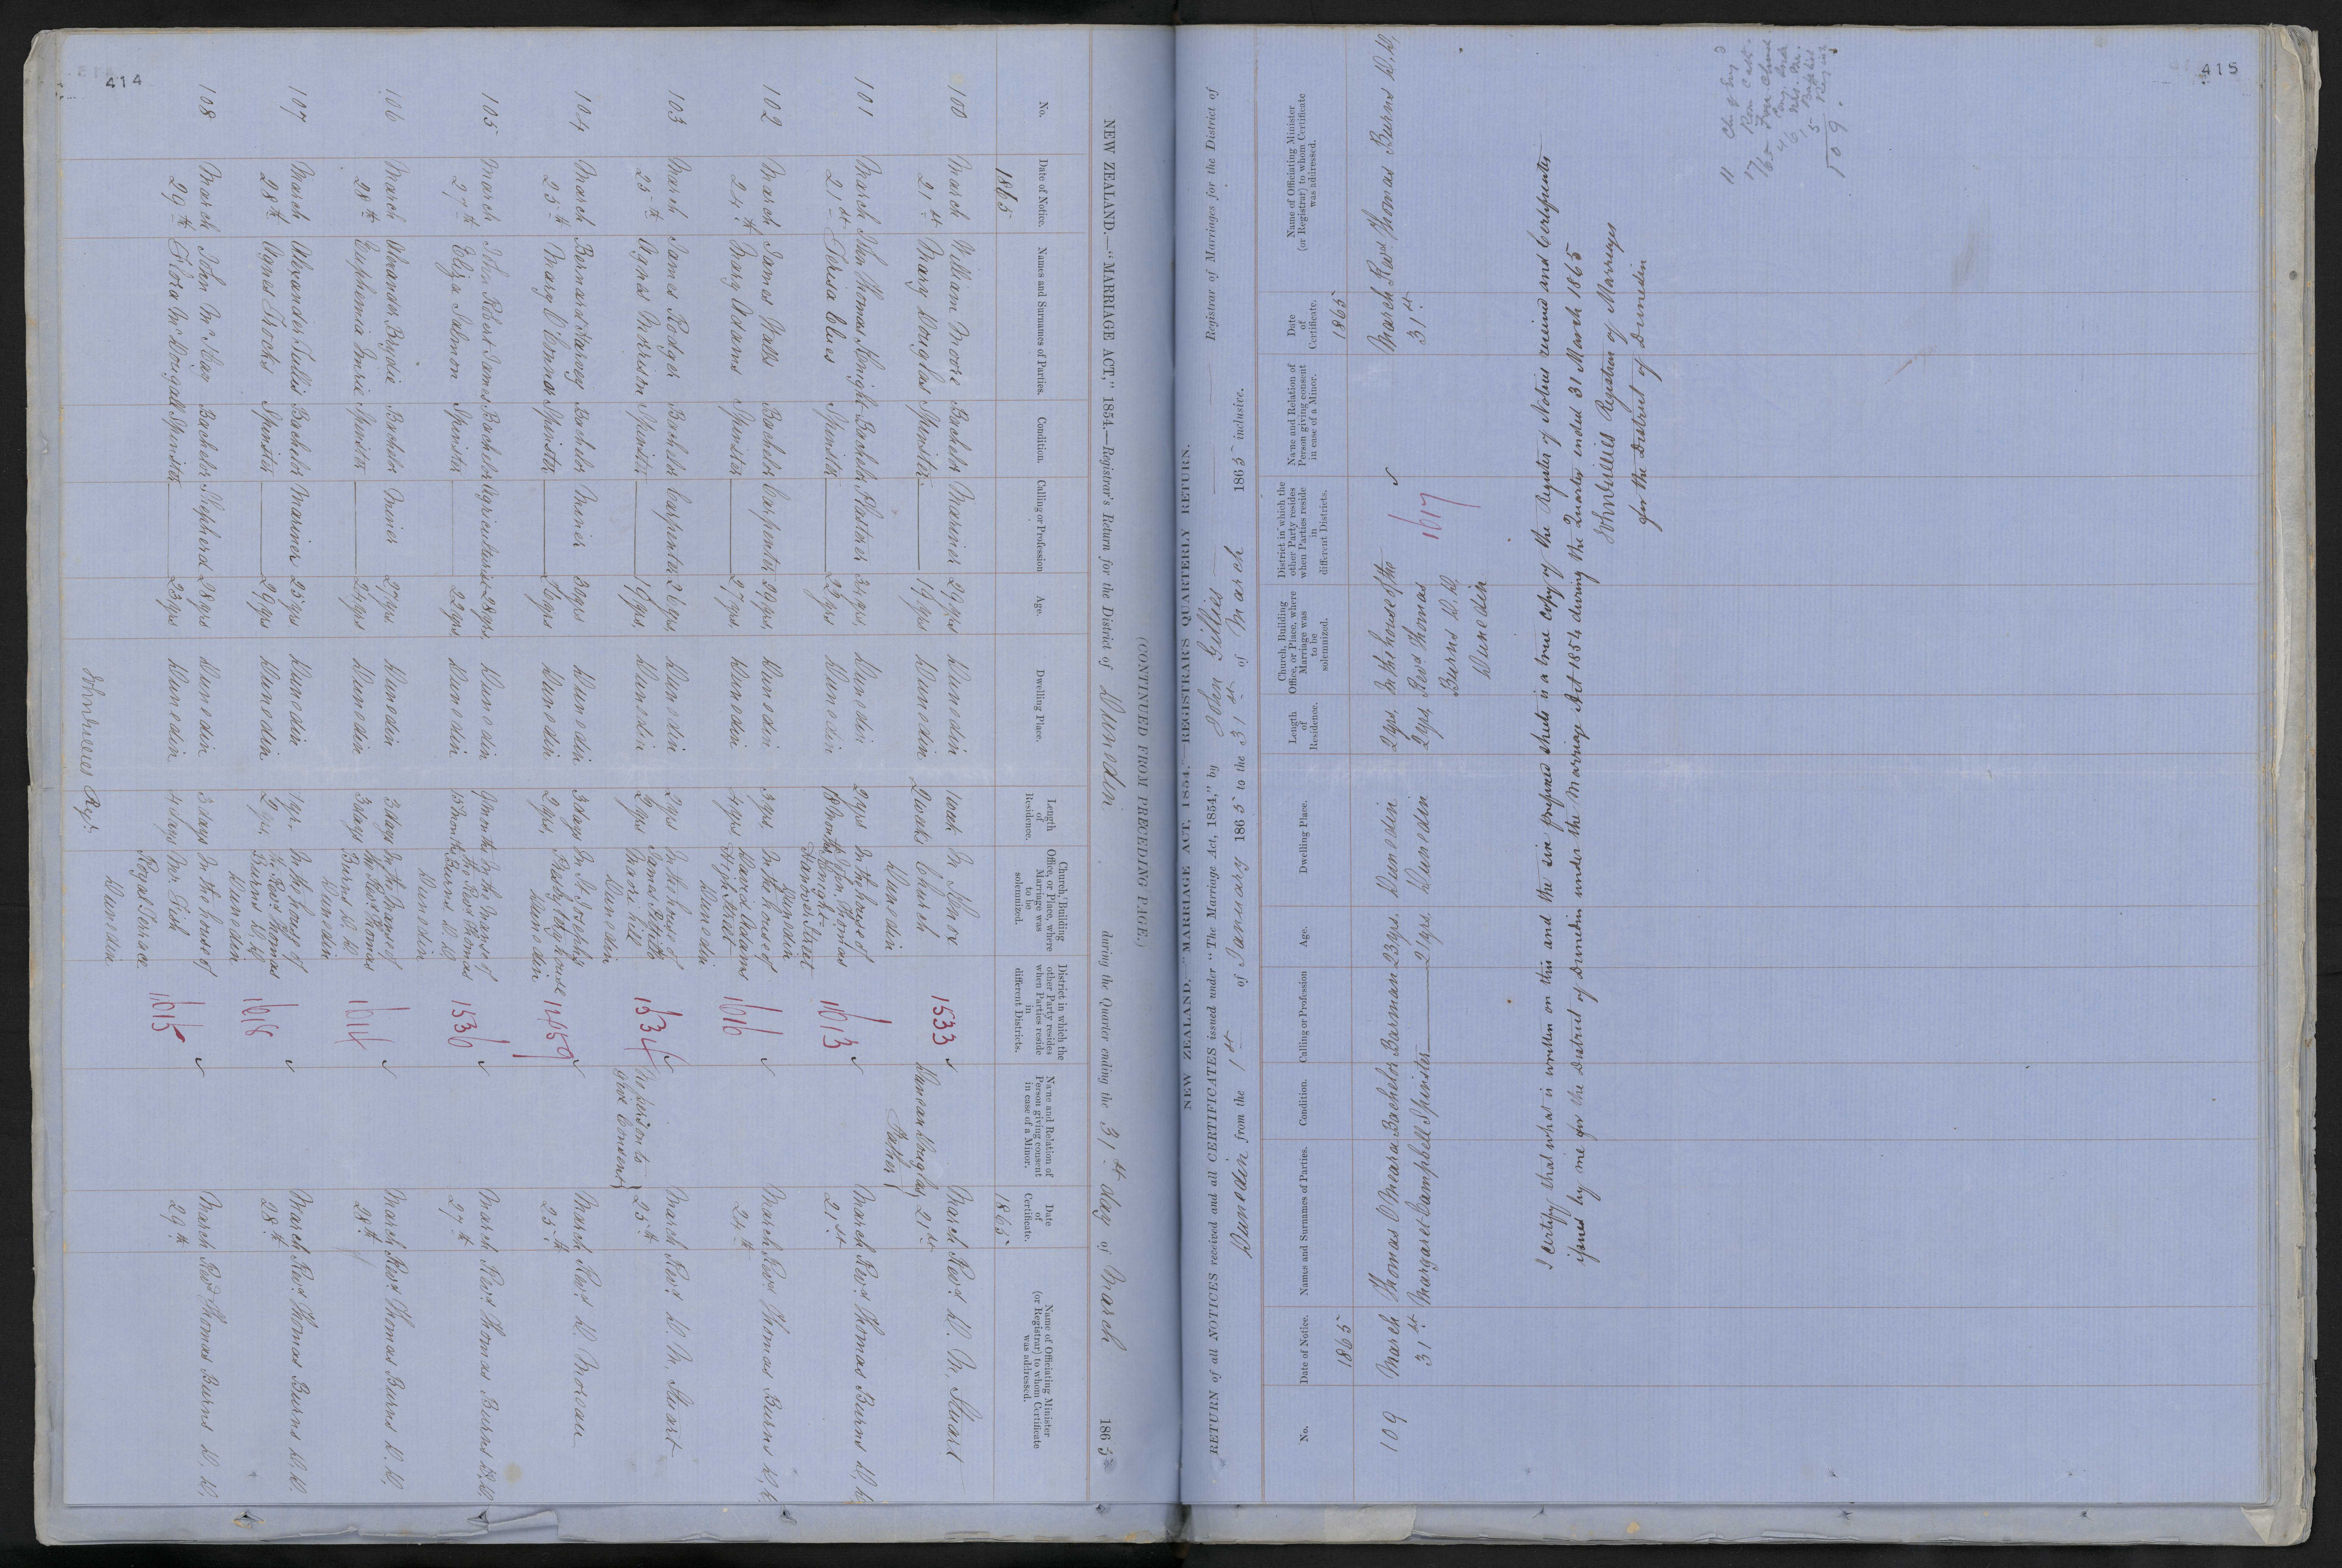 414
NEW ZEALAND.—"MARRIAGE ACT," 1854.—Registrar's Return for the District of Dunedin during the Quarter ending the 31st day of March 1865
(CONTINUED FROM PRECEDING PAGE.)
No. Date of Notice. Names and Surnames of Parties. Condition. Calling or Profession Age. Dwelling Place. Length of Residence. Church, Building Office, or Place, where Marriage was to be solemnized. District in which the other Party resides when Parties reside in different Districts. Name and Relation of Person giving consent in case of a Minor. Date of Certificate. Name of Officiating Minister (or Registrar) to whom Certificate was addressed.
1865 1865
100 March William Moore Bachelor Mariner 29 yrs Dunedin 1 week In Knox 1533 ✓ March Revd. D. M. Stuart
21st Mary Douglas Spinster 19 yrs Dunedin 2 weeks Church Duncan Douglas 21st
Dunedin Father
101 March John Thomas Knight Bachelor Plasterer 24 yrs, Dunedin 2 yrs In the house of ✓ March Revd. Thomas Burns D.D.
21st Teresa Clues Spinster 22 yrs Dunedin 18 Months John Thomas 1613 21st
Knight
Hanover Street
Dunedin
102 March James Walls Bachelor Carpenter 29 yrs, Dunedin 3 yrs, In the house of ✓ March Revd. Thomas Burns D.D.
24th Mary Adams Spinster 27 yrs, Dunedin 4 yrs, David Adams 1616 24th
High Street
Dunedin
103 March James Rodger Bachelor Carpenter 26 yrs, Dunedin 2 yrs In the house of 1534 ✓ March Revd. D. M. Stuart
25th Agnes Morrison Spinster 19 yrs, Dunedin 2 yrs James No person to 25th
Maori hill give Consent
Dunedin
104 March Bernard Harvey Bachelor Miner 30 yrs Dunedin 3 days In St. Josephs 1459 ✓ March Revd. D. Moreau
25th Mary O'Connor Spinster 26 yrs Dunedin 2 yrs, Presbytery house 25th
Dunedin
105 March John Robert James Bachelor Agriculturist 28 yrs, Dunedin In the Manse of 1536 ✓ March Revd Thomas Burns D.D.
27th Eliza Salmon Spinster 22 yrs, Dunedin 15 Months the Revd Thomas 27th
Burns D.D.
Dunedin
106 March Alexander Brydie Bachelor Miner 27 yrs. Dunedin 3 days In the Manse of ✓ March Revd Thomas Burns D.D.
28th Euphemia Imrie Spinster 24 yrs Dunedin 3 days the Revd. Thomas 1614 28th
Burns D.D.
Dunedin
107 March Alexander Tullis Bachelor Mariner 25 yrs Dunedin 1 yr, In the house of ✓ March Revd Thomas Burns D.D.
28th Agnes Spinster 29 yrs Dunedin 2 yrs, the Revd Thomas 1618 28th
Burns D.D.
Dunedin
108 March John McKay Bachelor Shepherd 28 yrs Dunedin 3 days In the house of ✓ March Revd Thomas Burns D.D.
29th Flora McDougall Spinster 23 yrs Dunedin 4 days 1615 29th
Royal Terrace
Dunedin
John Gillies Regr.
415
NEW ZEALAND.—"MARRIAGE ACT, 1854."—REGISTRAR'S QUARTERLY RETURN.
RETURN of all NOTICES received and all CERTIFICATES issued under "The Marriage Act, 1854," by John Gillies Registrar of Marriages for the District of
Dunedin from the 1st of January 1865 to the 31st of March 1865 inclusive.
No. Date of Notice. Names and Surnames of Parties. Condition. Calling or Profession Age. Dwelling Place. Length of Residence. Church, Building Office, or Place, where Marriage was to be solemnized. District in which the other Party resides when Parties reside in different Districts. Name and Relation of Person giving consent in case of a Minor. Date of Certificate. Name of Officiating Minister (or Registrar) to whom Certificate was addressed.
1865 1865
109 March Thomas OMeara Bachelor Barman 23 yrs, Dunedin 2 yrs, In the house of the ✓ March Revd Thomas Burns D.D,
31st Margaret Campbell Spinster 21 yrs, Dunedin 2 yrs, Revd Thomas 1617 31st
Burns D.D,
Dunedin
I certify that what is written on this and the six prefixed sheets is a true copy of the Register of Notices received and Certificates
issued by me for the District of Dunedin under the Marriage Act 1854 during the Quarter ended 31 March 1865
John Gillies Registrar of Marriages
for the District of Dunedin
11 Ch of Eng
17 Rom Cath.
65 Free Church
4 Cong. Inde
6
1 Baptist
5 Registrar
109.